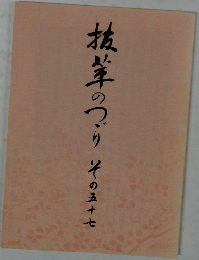 抜萃のつゞり その五十七